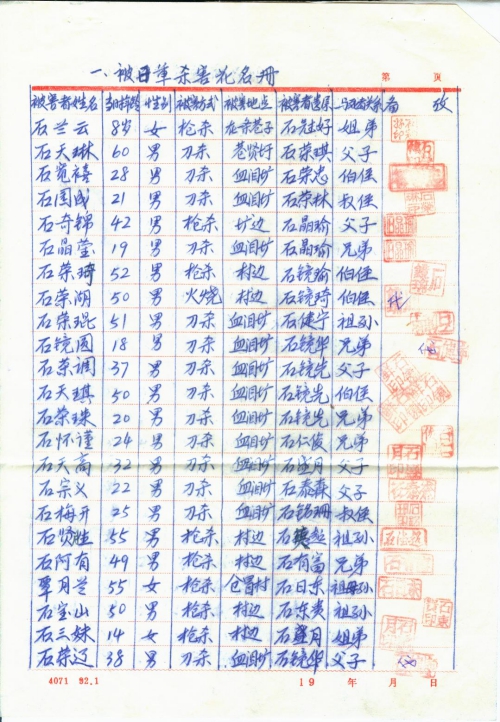 一、被日军杀害花名册
第 页
被害者姓名 当时年龄 性别 被害方式 被害地点 被害者遗属 与死者关系 备 考
石兰云 8岁 女 枪杀 石先好 姐弟
石天琳 60 男 刀杀 石荣琪 父子
石宽禧 28 男 刀杀 血泪圹 石荣忠 伯侄
石国成 21 男 刀杀 血泪圹 石荣林 叔侄
石奇锦 42 男 枪杀 圹边 石晶瑜 父子
石晶莹 19 男 刀杀 血泪圹 石晶瑜 兄弟
石荣琦 52 男 枪杀 村边 石镜瑜 伯侄
石荣湖 50 男 火烧 村边 石镜琦 伯侄 代
石荣琨 51 男 刀杀 血泪圹 石健宁 祖孙
石镜圆 18 男 刀杀 血泪圹 石镜华 兄弟
石荣调 37 男 刀杀 血泪圹 石镜先 父子
石天琪 50 男 刀杀 血泪圹 石镜先 伯侄
石荣珠 20 男 刀杀 血泪圹 石镜先 兄弟
石怀谨 24 男 刀杀 血泪圹 石仁俊 兄弟
石天高 32 男 刀杀 血泪圹 石盛月 父子
石宗义 22 男 刀杀 血泪圹 石泰森 父子
石梅开 25 男 刀杀 血泪圹 石铭珊 叔侄
石贤胜 55 男 枪杀 村边 祖孙
石阿有 49 男 枪杀 村边 石有富 兄弟
覃月兰 55 女 枪杀 仓冒村 石日东 祖母孙
石宝山 50 男 枪杀 村边 石东贵 祖孙
石三妹 14 女 枪杀 村边 石盛月 姐弟
石荣辽 38 男 刀杀 血泪圹 石镜华 父子
4071 92.1 19 年 月 日